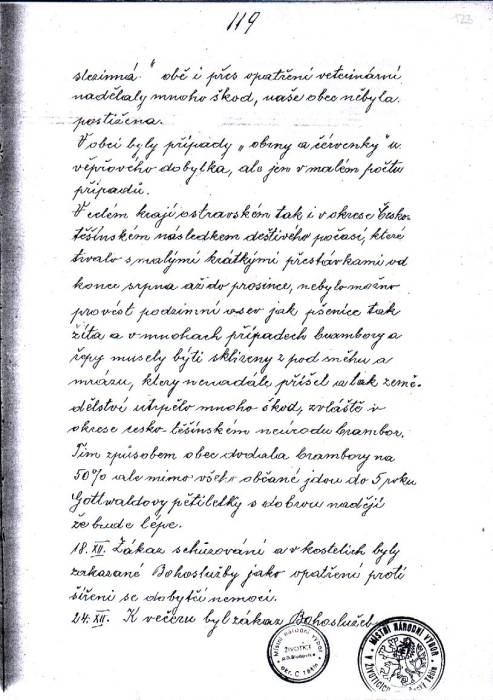 119
123
slezinná." obě i přes opatření veterinární
nadělaly mnoho škod, naše obec nebyla
postižena.
V obci byly případy „obrny a červenky" u
vepřového dobytka, ale jen v malém počtu
případů.
V celém kraji ostravském tak i v okrese Česko-
těšínském následkem deštivého počasí, které
trvalo s malými krátkými přestávkami od
konce srpna až do prosince, nebylo možno
provést podzimní osev jak pšenice tak
žita a v mnohach případech brambory a
řepy musely býti sklizeny z pod sněhu a
mrazu, který neuradále, přišel a tak země-
dělství utrpělo mnoho škod, zvláště v
okrese česko-těšínském neúrodu brambor.
Tím způsobem obec dodala brambory na
50% ale mimo všeho občané jdou do 5 roku
Gottwaldovy pětiletky s dobrou nadějí
že bude lépe.
18. XII. Zákaz schůzování a v kostelích byly
zakázané Bohoslužby jako opatření proti
šíření se dobytčí nemoci.
24. XII. K večeru byl zákaz Bohoslužeb
Místní národní výbor
ŽIVOTICE
okr. Č. Těšín
MÍSTNÍ NÁRODNÍ VÝBOR
V ŽIVOTICÍCH